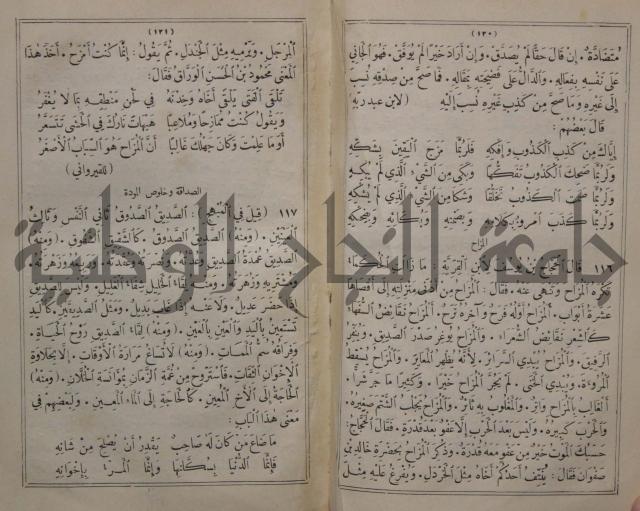 (١٣٠)
مُتَضَادَّةٌ. إِنْ قَالَ حَقًّا لَمْ يُصَدَّقْ. وَإِنْ أَرَادَ خَيْرًا لَمْ يُوَفَّقْ. فَهُوَ الْجَانِي
عَلَى نَفْسِهِ بِفِعَالِهِ. وَالدَّالُّ عَلَى فَضِيحَتِهِ بِمَقَالِهِ. فَمَا صَحَّ مِنْ صِدْقِهِ نُسِبَ
إِلَى غَيْرِهِ وَمَا صَحَّ مِنْ كَذِبِ غَيْرِهِ نُسِبَ إِلَيْهِ (لابن عبد ربّه)
قَالَ بَعْضُهُمْ:
إِيَّاكَ مِنْ كَذِبِ الْكَذُوبِ وَإِفْكِهِ فَلَرُبَّمَا مَزَجَ الْيَقِينَ بِشَكِّهِ
وَلَرُبَّمَا ضَحِكَ الْكَذُوبُ تَفَكُّهًا وَبَكَى مِنَ الشَّيْءِ الَّذِي لَمْ يُبْكِهِ
وَلَرُبَّمَا صَمَتَ الْكَذُوبُ تَخَلُّقًا وَشَكَا مِنَ الشَّيْءِ الَّذِي لَمْ يُشْكِهِ
وَلَرُبَّمَا كَذَبَ امْرُؤٌ بِكَلَامِهِ وَبِصَمْتِهِ وَبُكَائِهِ وَبِضِحْكِهِ
المزاح
١١٦ قَالَ الْحَجَّاجُ بْنُ يُوسُفَ لِابْنِ الْقِرِّيَّةِ: مَا زَالَتِ الْحُكَمَاءُ
تَكْرَهُ الْمُزَاحَ وَتَنْهَى عَنْهُ. فَقَالَ: الْمُزَاحُ مِنْ أَدْنَى مَنْزِلَتِهِ إِلَى أَقْصَاهَا
عَشَرَةُ أَبْوَابٍ. الْمُزَاحُ أَوَّلُهُ فَرَحٌ وَآخِرُهُ تَرَحٌ. الْمُزَاحُ نَقَائِضُ السُّفَهَاءِ
كَالشِّعْرِ نَقَائِضُ الشُّعَرَاءِ. وَالْمُزَاحُ يُوغِرُ صَدْرَ الصَّدِيقِ. وَيُنَفِّرُ
الرَّفِيقَ. وَالْمُزَاحُ يُبْدِي السَّرَائِرَ. لِأَنَّهُ يُظْهِرُ الْمَعَايِرَ. وَالْمُزَاحُ يُسْقِطُ
الْمُرُوءَةَ. وَيُبْدِي الْخَنَى. لَمْ يَجُرَّ الْمُزَاحُ خَيْرًا. وَكَثِيرًا مَا جَرَّ شَرًّا.
الْغَالِبُ بِالْمُزَاحِ وَاتِرٌ. وَالْمَغْلُوبُ بِهِ ثَائِرٌ. وَالْمُزَاحُ يَجْلُبُ الشَّتْمَ صَغِيرُهُ.
وَالْحَرْبَ كَبِيرُهُ. وَلَيْسَ بَعْدَ الْحَرْبِ إِلَّا عَفْوٌ بَعْدَ قُدْرَةٍ. فَقَالَ الْحَجَّاجُ:
حَسْبُكَ الْمَوْتُ خَيْرٌ مِنْ عَفْوٍ مَعَهُ قُدْرَةٌ. وَذُكِرَ الْمُزَاحُ بِحَضْرَةِ خَالِدِ بْنِ
صَفْوَانَ فَقَالَ: يَنْتِفُ أَحَدُكُمْ أَخَاهُ مِثْلَ الْخَرْدَلِ. وَيُفْرِغُ عَلَيْهِ مِثْلَ
(١٣١)
الْمِرْجَلِ. وَيَرْمِيهِ مِثْلَ الْجَنْدَلِ. ثُمَّ يَقُولُ: إِنَّمَا كُنْتُ أَمْزَحُ. أَخَذَ هٰذَا
الْمَعْنَى مَحْمُودُ بْنُ الْحَسَنِ الْوَرَّاقُ فَقَالَ:
تَلْقَى الْفَتَى يَلْقَى أَخَاهُ وَخِدْنَهُ فِي لَحْنِ مَنْطِقِهِ بِمَا لَا يُغْفَرُ
وَيَقُولُ كُنْتُ مُمَازِحًا وَمُلَاعِبًا هَيْهَاتَ نَارُكَ فِي الْحَشَى تَتَسَعَّرُ
أَوَمَا عَلِمْتَ وَكَانَ جَهْلُكَ غَالِبًا أَنَّ الْمُزَاحَ هُوَ السِّبَابُ الْأَصْغَرُ
(للقيرواني)
الصداقة وخلوص المودة
١١٧ (قِيلَ فِي الْمُبْهِجِ): الصَّدِيقُ الصَّدُوقُ ثَانِي النَّفْسِ وَثَالِثُ
الْعَيْنَيْنِ. (وَمِنْهُ) الصَّدِيقُ الصَّدُوقُ. كَالشَّقِيقِ الشَّفُوقِ. (وَمِنْهُ)
الصَّدِيقُ عُمْدَةُ الصَّدِيقِ وَعُدَّتُهُ. وَنُصْرَتُهُ وَعُقْدَتُهُ. وَرَبِيعُهُ وَزَهْرَتُهُ.
وَمُشْتَرِيهِ وَزُهَرَتُهُ. وَمِنْهُ لِقَاءُ الْخَلِيلِ شِفَاءُ الْغَلِيلِ. وَلَيْسَ لِلصَّدِيقِ
إِذَا حَضَرَ عَدِيلٌ. وَلَا عَنْهُ إِذَا غَابَ بَدِيلٌ. وَمَثَلُ الصَّدِيقَيْنِ. كَالْيَدِ
تَسْتَعِينُ بِالْيَدِ وَالْعَيْنِ بِالْعَيْنِ. (وَمِنْهُ) لِقَاءُ الصَّدِيقِ رَوْحُ الْحَيَاةِ.
وَفِرَاقُهُ سُمُّ الْمَمَاتِ. (وَمِنْهُ) لَا تُسَاغُ مَرَارَةُ الْأَوْقَاتِ. إِلَّا بِحَلَاوَةِ
الْإِخْوَانِ الثِّقَاتِ. فَاسْتَرْوِحْ مِنْ غُمَّةِ الزَّمَانِ بِمُؤَانَسَةِ الْخُلَّانِ. (وَمِنْهُ)
الْحَاجَةُ إِلَى الْأَخِ الْمُعِينِ. كَالْحَاجَةِ إِلَى الْمَاءِ الْمَعِينِ. وَلِبَعْضِهِمْ فِي
مَعْنَى هٰذَا الْبَابِ:
مَا ضَاعَ مَنْ كَانَ لَهُ صَاحِبٌ يَقْدِرُ أَنْ يُصْلِحَ مِنْ شَانِهِ
فَإِنَّمَا الدُّنْيَا بِسُكَّانِهَا وَإِنَّمَا الْمَرْءُ بِإِخْوَانِهِ
جامعة النجاح الوطنية